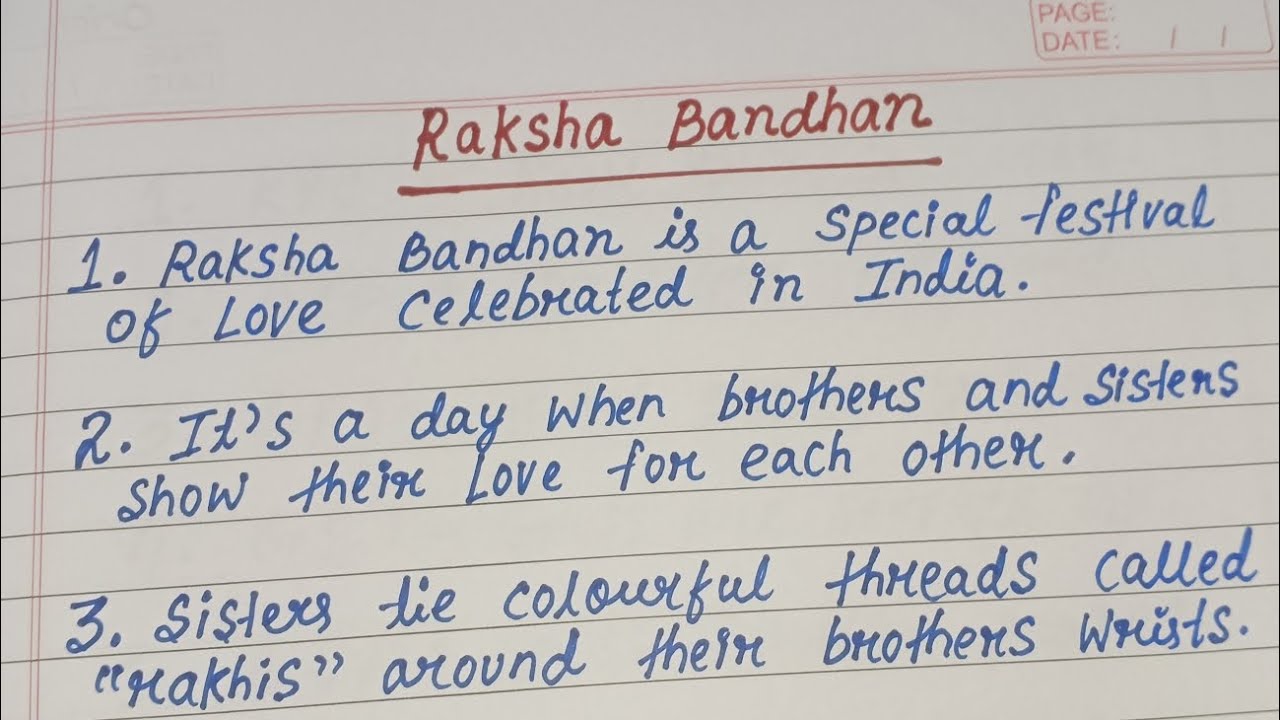 PAGE:
DATE: / /
Raksha Bandhan
1. Raksha Bandhan is a special festival
of Love celebrated in India.
2. It's a day when brothers and sisters
show their love for each other.
3. Sisters tie colourful threads called
"rakhis" around their brothers wrists.